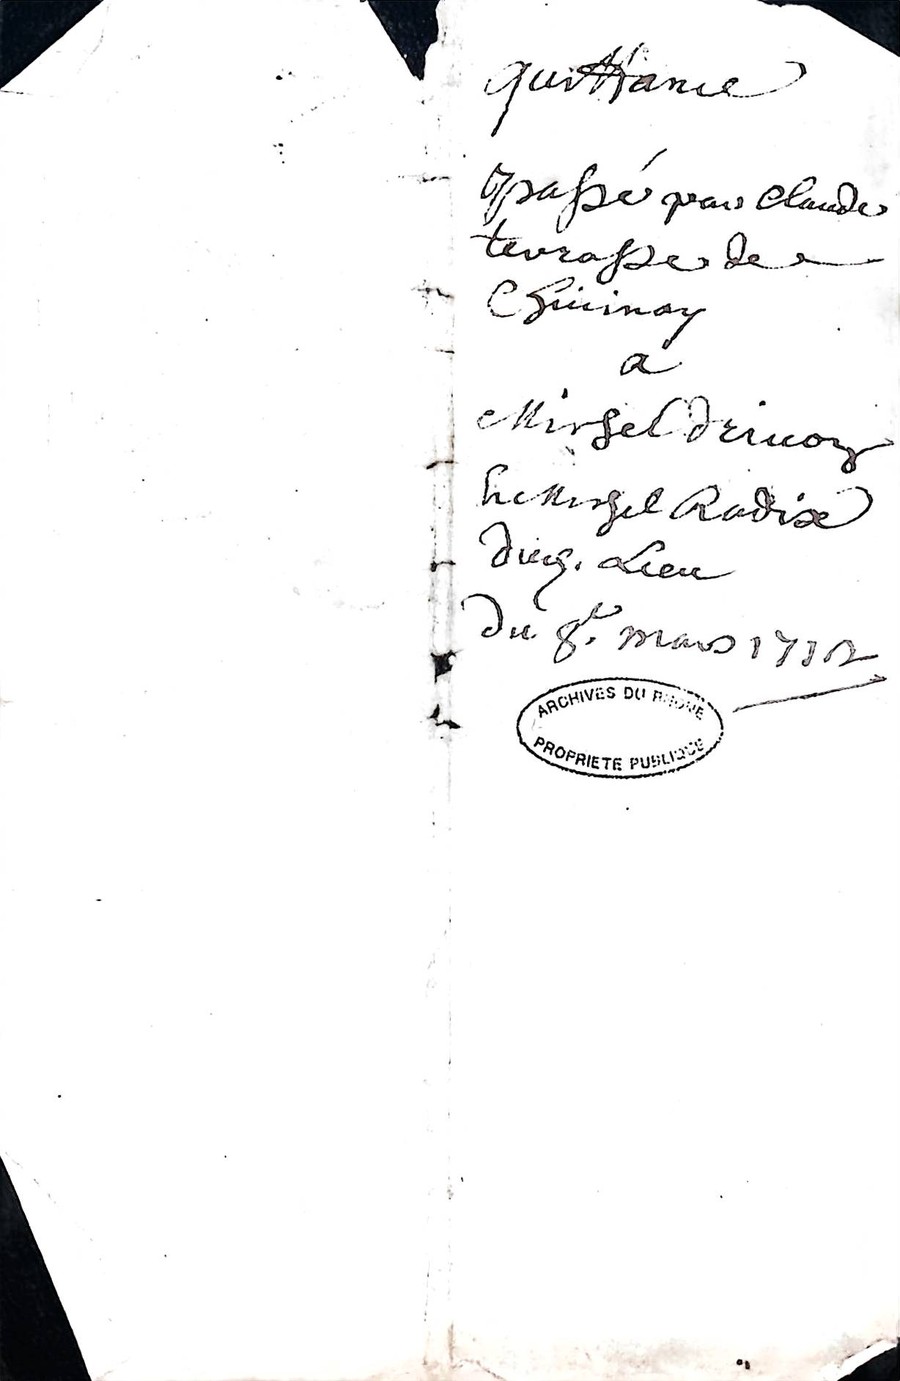 quittance
passé par Claude
terrasse de
Chuinay
a
Michel
Michel Radix
dud. Lieu
du 8e. mars 1712
ARCHIVES DU RHONE
PROPRIETE PUBLIQUE